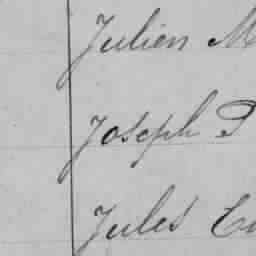 Julien M
Joseph P
Jules Cu